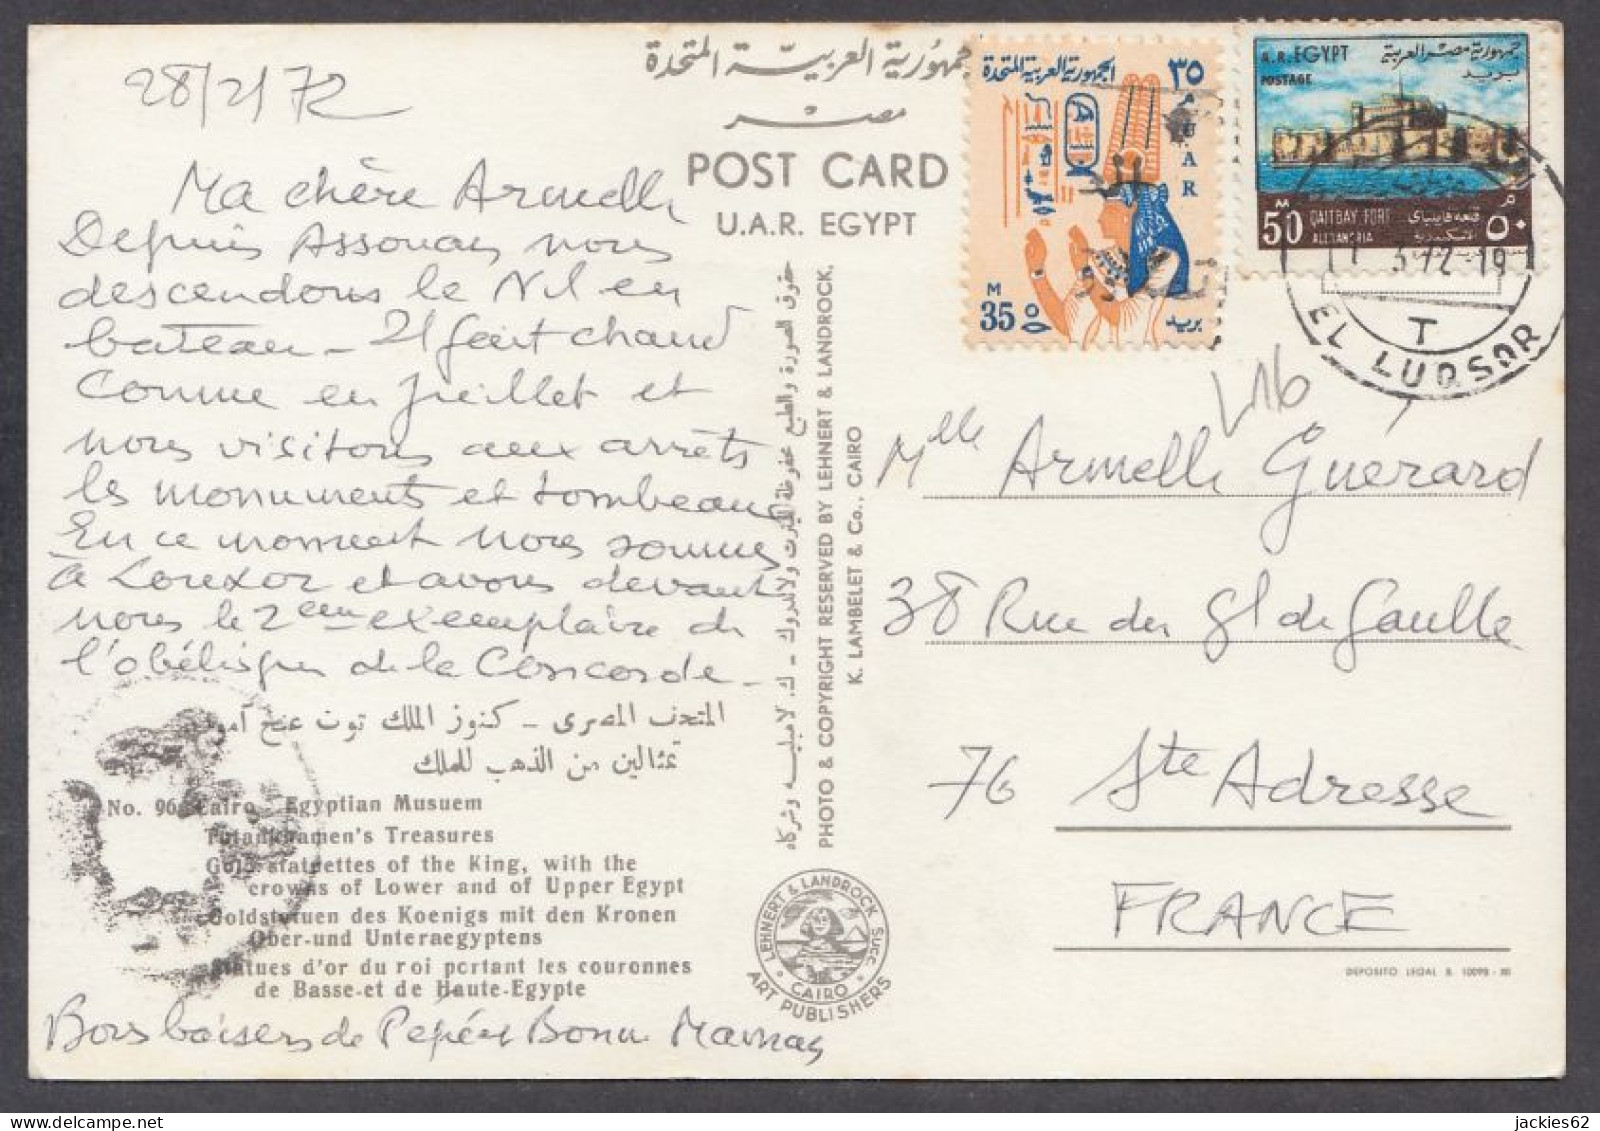 28/2/72
Ma chère Armelle
Depuis Assouan nous
descendons le Nil en
bateau - Il fait chaud
comme en juillet et
nous visitons aux arrêts
les monuments et tombeaux
En ce moment nous sommes
à Louxor et avons devant
nous le 2ème exemplaire de
l'obélisque de la Concorde -
المتحف المصرى - كنوز الملك توت عنخ آمون
تمثالين من الذهب للملك
No. 96 Cairo - Egyptian Musuem
Tutankhamen's Treasures
Gold statuettes of the King, with the
crowns of Lower and of Upper Egypt
Goldstatuen des Koenigs mit den Kronen
Ober-und Unteraegyptens
Statues d'or du roi portant les couronnes
de Basse-et de Haute-Egypte
Bons baisers de Pépé et Bonne Maman
جمهورية العربية المتحدة
مصر
POST CARD
U.A.R. EGYPT
حقوق الصورة والطبع محفوظة للينرت ولاندروك - ك. لامبليه وشركاه
PHOTO & COPYRIGHT RESERVED BY LEHNERT & LANDROCK,
K. LAMBELET & Co., CAIRO
LEHNERT & LANDROCK SUCC.
CAIRO
ART PUBLISHERS
الجمهورية العربية المتحدة
٣٥
UAR
M
35
بريد
A.R. EGYPT
POSTAGE
جمهورية مصر العربية
بريد
M
50
QAITBAY FORT
ALEXANDRIA
قلعة قايتباى
الاسكندرية
م
٥٠
3 72 19
T
EL LUQSOR
Mlle Armelle Guérard
38 Rue du Gl de Gaulle
76 Ste Adresse
FRANCE
DEPOSITO LEGAL B. 10098 - XII
jackies62